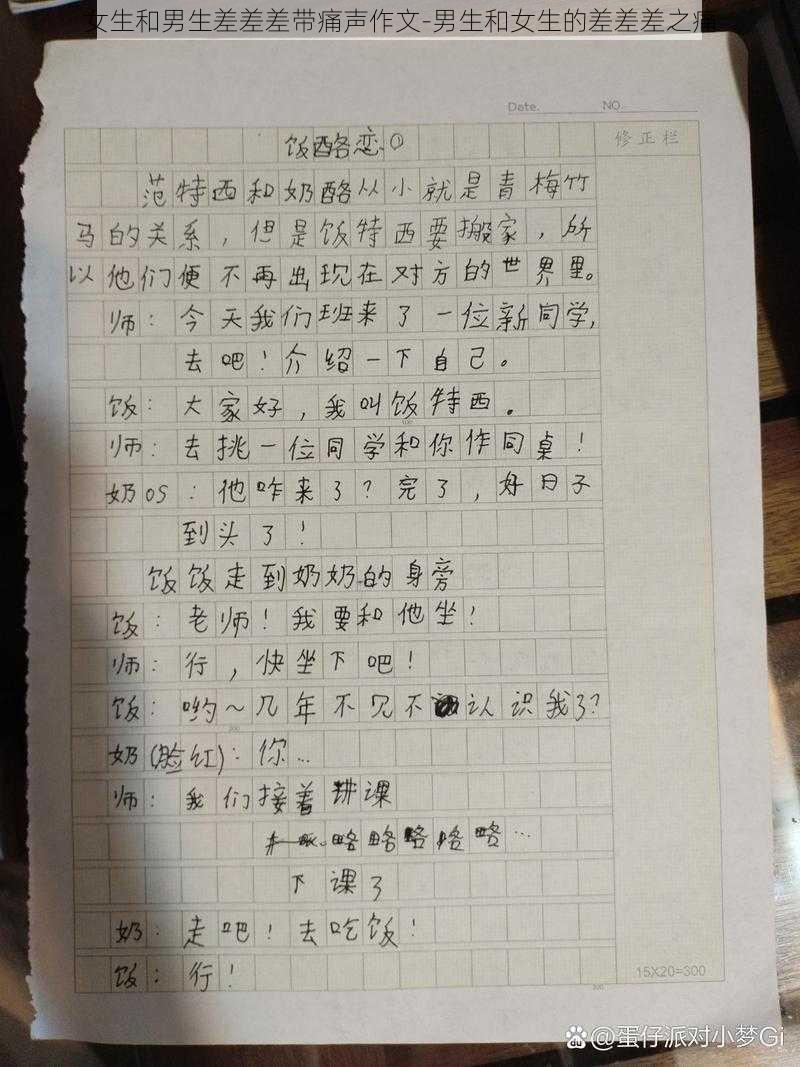 女生和男生差差差带痛声作文-男生和女生的差差差之痛
Date.
NO.
修正栏
饭酪恋①
范特西和奶酪从小就是青梅竹
马的关系，但是饭特西要搬家，所
以他们便不再出现在对方的世界里。
师：今天我们班来了一位新同学，
去吧！介绍一下自己。
饭：大家好，我叫饭特西。
师：去挑一位同学和你作同桌！
奶OS：他咋来了？完了，好日子
到头了！
饭饭走到奶奶的身旁
饭：老师！我要和他坐！
师：行，快坐下吧！
饭：哟～几年不见不认识我了？
奶(脸红)：你…
师：我们接着讲课
略略略略略…
下课了
奶：走吧！去吃饭！
饭：行！
15X20=300
@蛋仔派对小梦Gi